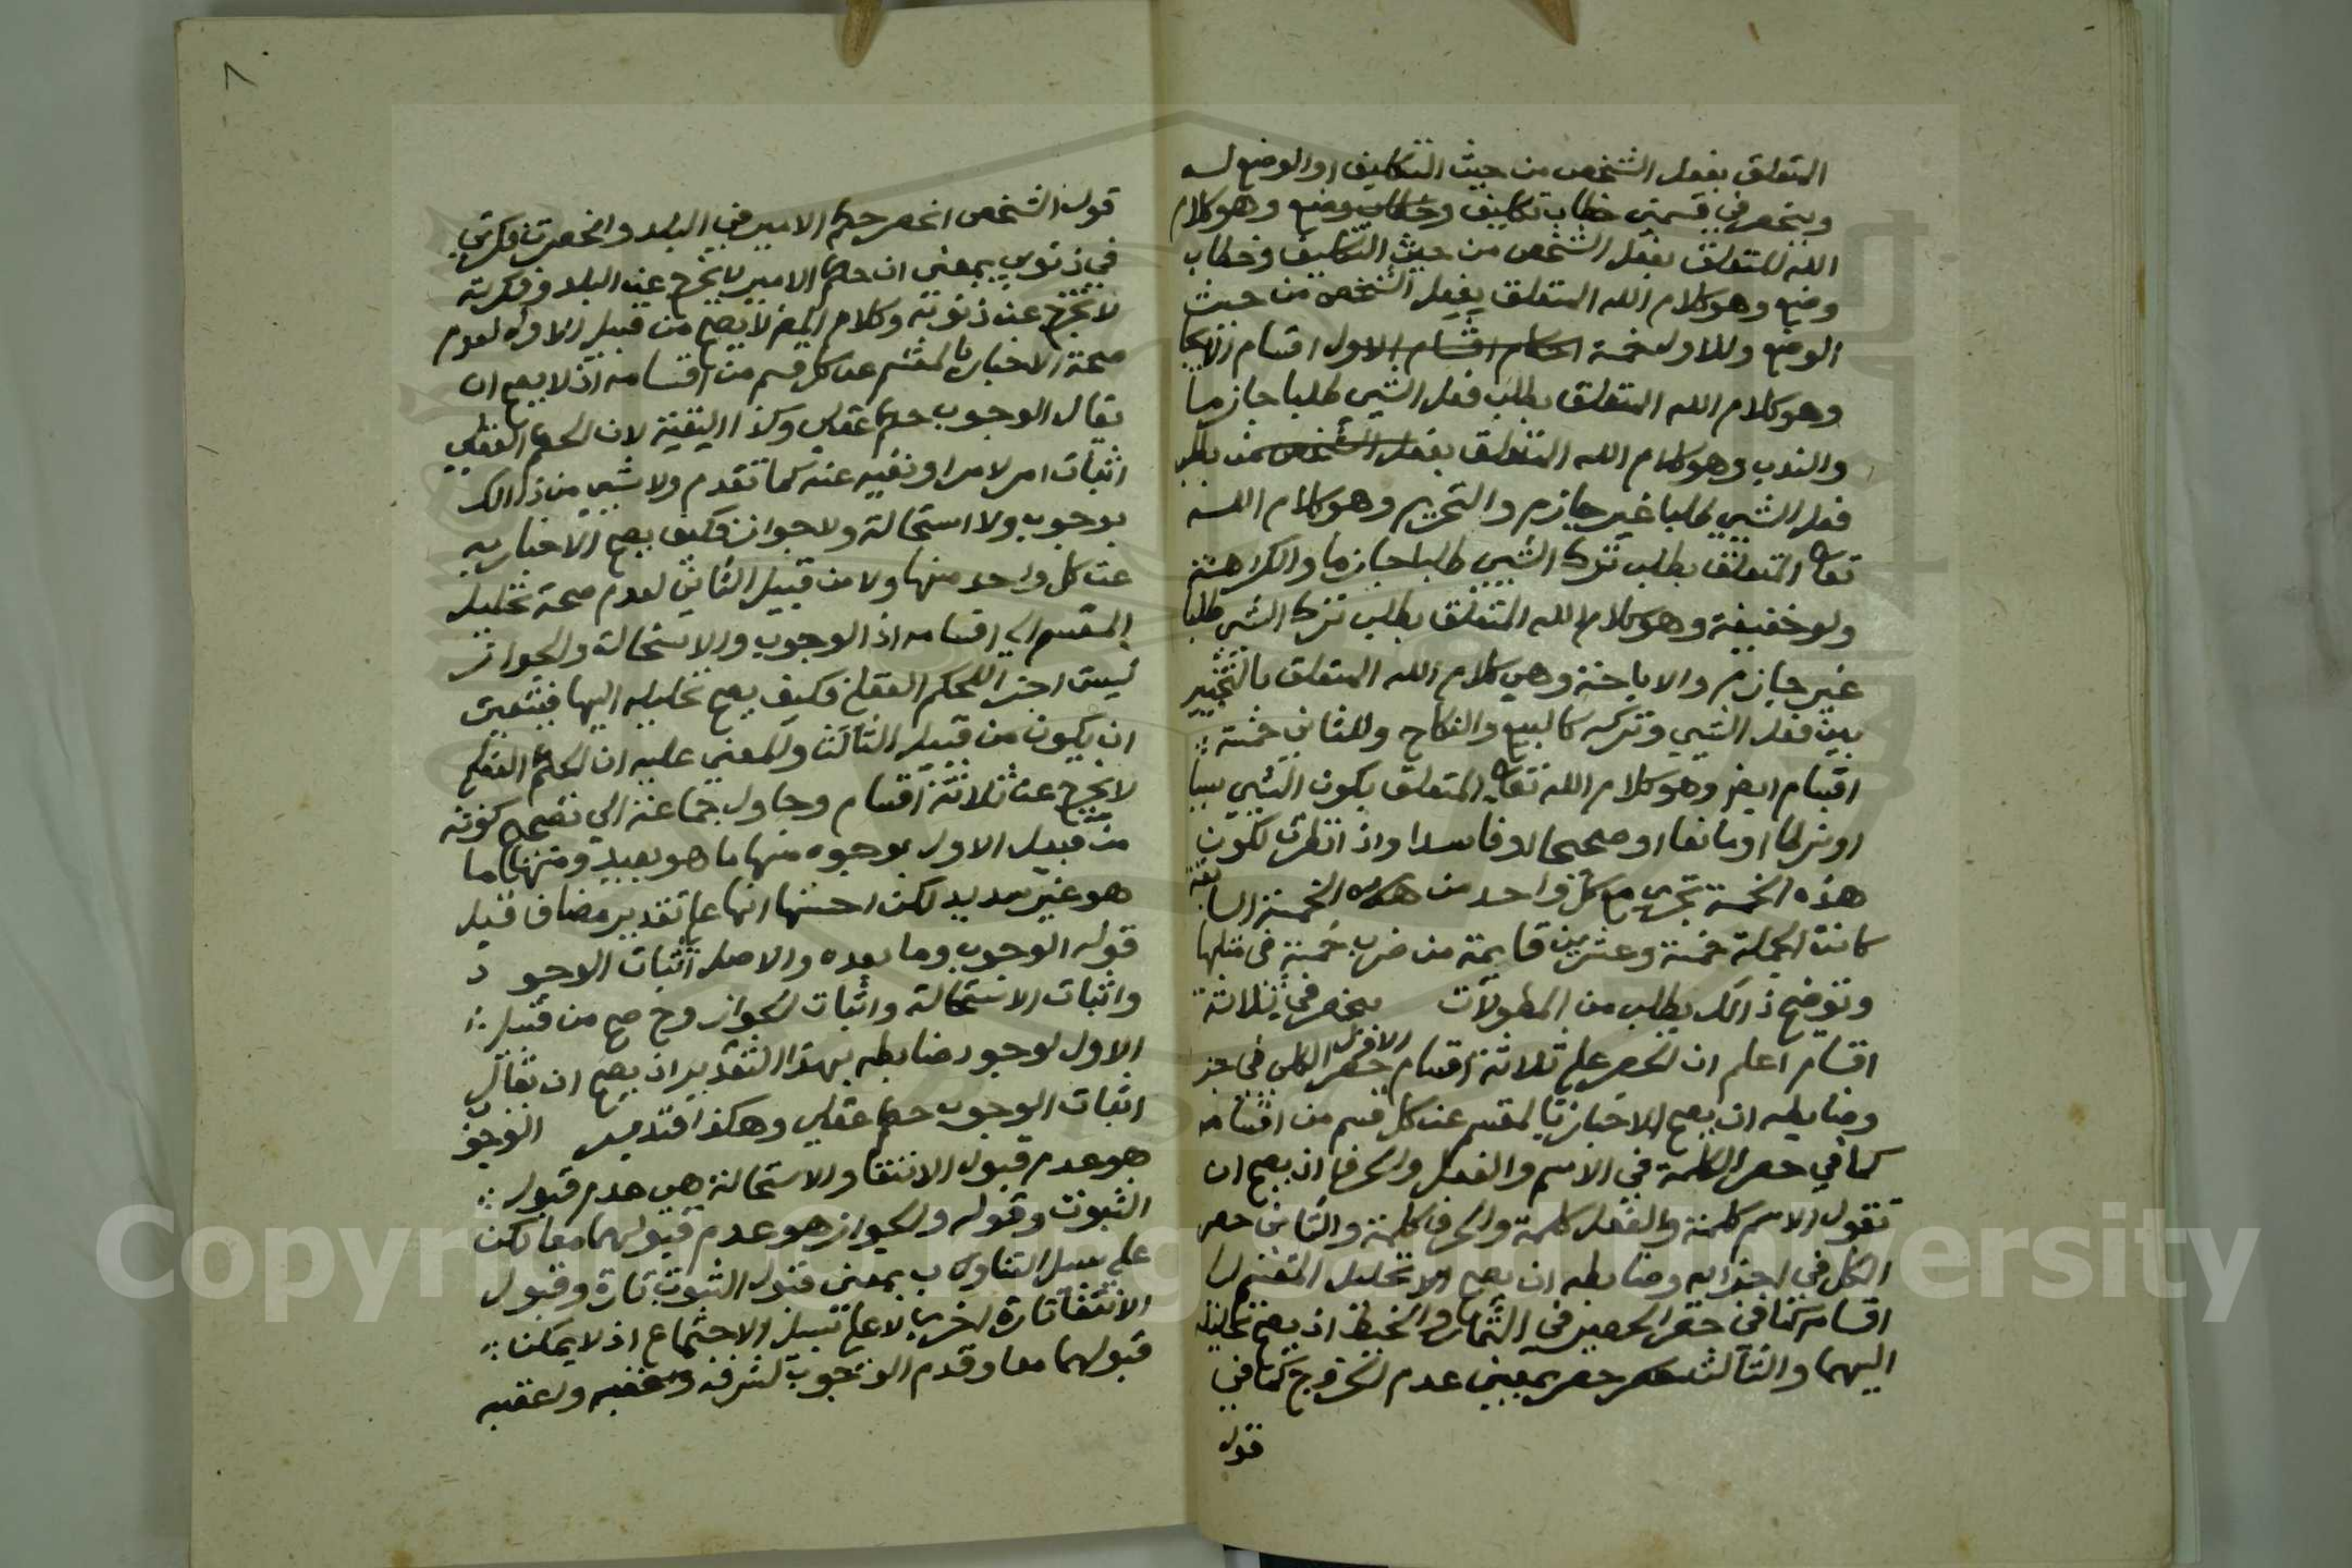 المتعلق بفعل الشخص من حيث التكليف او الوضع له
وينحصر في قسمين خطاب تكليف وخطاب وضع وهو كلام
الله المتعلق بفعل الشخص من حيث التكليف وخطاب
وضع وهو كلام الله المتعلق بفعل الشخص من حيث
الوضع وللاول خمسة احكام اقسام الاول اقسام الايجا
وهو كلام الله المتعلق بطلب فعل الشي طلبا جازما
والندب وهو كلام الله المتعلق بفعل الشخص من بطلب
فعل الشي طلبا غير جازم والتحريم وهو كلام الله
تعالى المتعلق بطلب ترك الشي طلبا جازما والكراهة
ولو خفيفة وهو كلام الله المتعلق بطلب ترك الشي طلبا
غير جازم والاباحة وهي كلام الله المتعلق بالتخيير
بين فعل الشي وتركه كالبيع والنكاح وللثاني خمسة
اقسام ايضا وهو كلام الله تعالى المتعلق بكون الشي سببا
او شرطا او مانعا او صحيحا او فاسدا واذا نظرت لكون
هذه الخمسة تجري مع كل واحد من هذه الخمسة السابقة
كانت الجملة خمسة وعشرين قايمة من ضرب خمسة في مثلها
وتوضيح ذالك يطلب من المطولات ينحصر في ثلاثة
اقسام اعلم ان الحصر على ثلاثة اقسام الاول حصر الكلي في جز
وضابطه ان يصح الاخبار بالمقسم عن كل قسم من اقسامه
كما في حصر الكلمة في الاسم والفعل والحرف اذ يصح ان
تقول الاسم كلمة والفعل كلمة والحرف كلمة والثاني حصر
الكل في اجزايه وضابطه ان يصح الا تحليل المقسم لـ
اقسامه كما في حصر الحصير في الثمار والخيط اذ يصح تحليله
اليهما والثالث حصر بمعنى عدم الخروج كما في
قول
٨
قول الشخص انحصر حكم الامير في البلد وانحصرت فكرتي
في ذنوبي بمعنى ان حكم الامير لا يخرج عن البلد وفكرته
لا تخرج عن ذنوبه وكلام المص لا يصح من قبيل الاول لعدم
صحة الاخبار بالمقسم عن كل قسم من اقسامه اذ لا يصح ان
يقال الوجوب حكم عقلي وكذا البقية لان الحكم العقلي
اثبات امر لامر او نفيه عنه كما تقدم ولا شي من ذالك
بوجوب ولا استحالة ولا جواز فكيف يصح الاخبار به
عن كل واحد منها ولا من قبيل الثاني لعدم صحة تحليل
المقسم الى اقسامه اذ الوجوب والاستحالة والجواز
ليست اجزا للحكم العقلي فكيف يصح تحليله اليها فيتعين
ان يكون من قبيل الثالث والمعنى عليه ان الحكم العقلي
لا يخرج عن ثلاثة اقسام وحاول جماعة الى تصحيح كونه
من قبيل الاول بوجوه منها ما هو بعيد ومنها ما
هو غير سديد لكن احسنها انها على تقدير مضاف قبل
قوله الوجوب وما بعده والاصل اثبات الوجو د
واثبات الاستحالة واثبات الجواز وح صح من قبيل
الاول لوجود ضابطه بهذا التقدير اذ يصح ان يقال
اثبات الوجوب حكم عقلي وهكذا الوجوب
هو عدم قبول الانتفا والاستحالة هي عدم قبول
الثبوت وقوله والجواز هو عدم قبولهما معا لكن
على سبيل التناوب بمعنى قبول الثبوت تارة وقبول
الانتفا تارة اخرى لا على سبيل الاجتماع اذ لا يمكن
قبولهما معا وقدم الوجوب لشرفه وعقبه